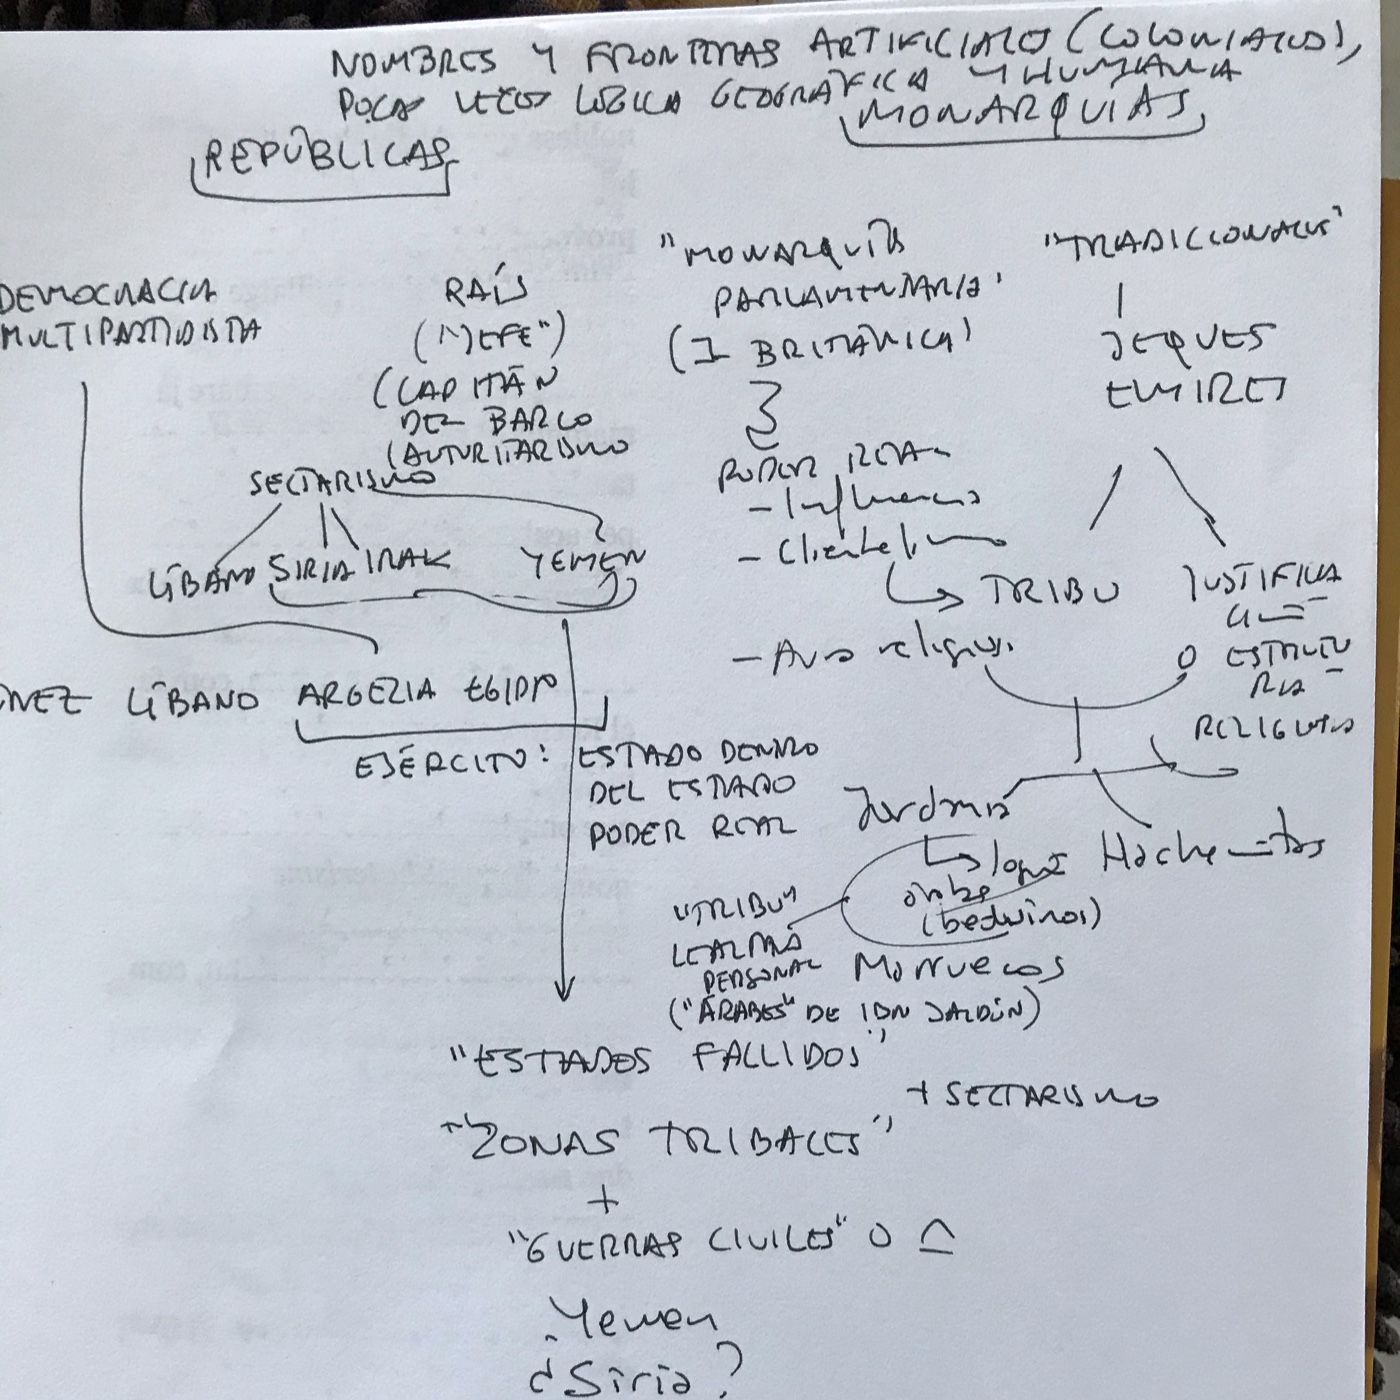 NOMBRES Y FRONTERAS ARTIFICIALES (COLONIALES),
POCAS VECES LÓGICA GEOGRÁFICA Y HUMANA
REPÚBLICAS
MONARQUÍAS
DEMOCRACIA
MULTIPARTIDISTA
RAÍS
("JEFE")
(CAPITÁN
DEL BARCO
(AUTORITARISMO
"MONARQUÍA
PARLAMENTARIA"
(I BRITÁNICA)
"TRADICIONALES"
JEQUES
EMIRES
SECTARISMO
LÍBANO SIRIA IRAK YEMEN
PODER REAL
- Influencia
- Clientelismo
TRIBU
- Aura religiosa
JUSTIFICA
O ESTATUTO
RELIGIOSO
LÍBANO ARGELIA EGIPTO
EJÉRCITO: ESTADO DENTRO
DEL ESTADO
PODER REAL
Jordania
Hachemitas
(beduinos)
"TRIBU"
LEALTAD
PERSONAL
Marruecos
("ÁRABES" DE IBN JALDÚN)
"ESTADOS FALLIDOS"
+ SECTARISMO
"ZONAS TRIBALES"
+
"GUERRAS CIVILES" O
Yemen
¿Siria?